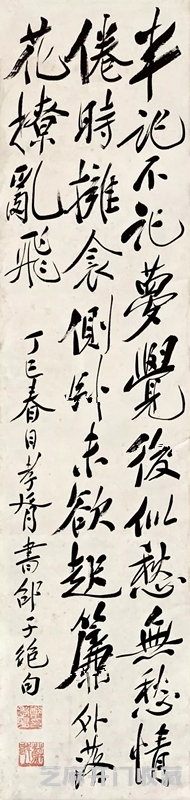 半記不記夢覺後似愁無愁情
倦時擁衾側卧未欲起簾外落
花撩亂飛
丁巳春日孝胥書邵子絕句